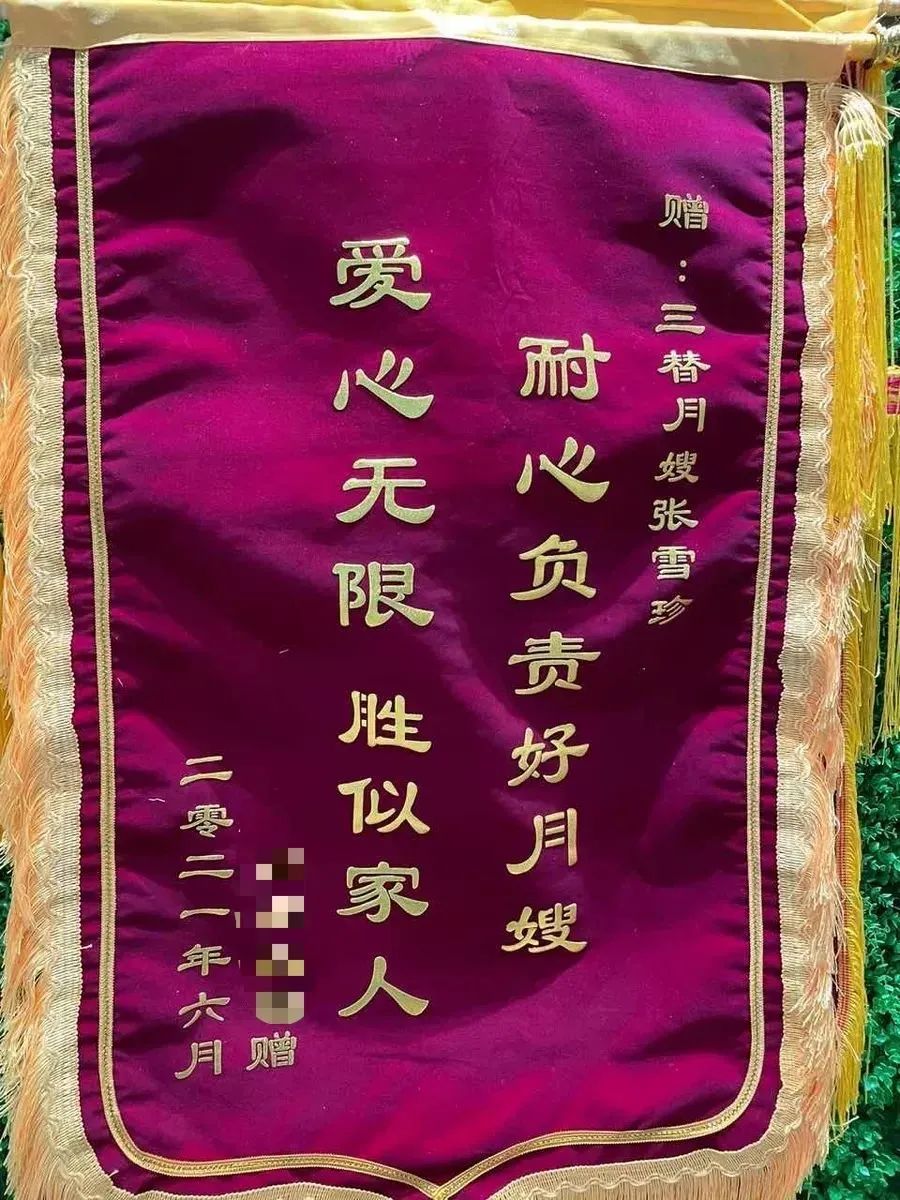 赠:三替月嫂张雪珍
耐心负责好月嫂
爱心无限 胜似家人
赠
二零二一年六月